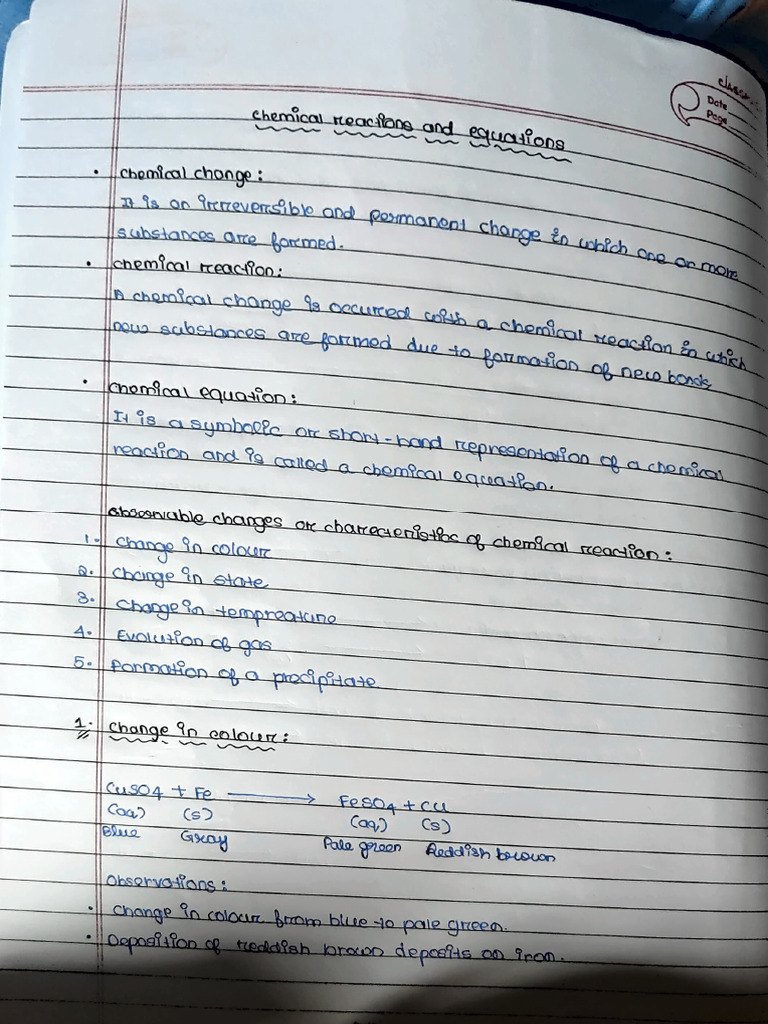 classmate
Date
Page
chemical reactions and equations
• chemical change:
It is an irreversible and permanent change in which one or more
substances are formed.
• chemical reaction:
A chemical change is occured with a chemical reaction in which
new substances are formed due to formation of new bonds
• chemical equation:
It is a symbolic or short-hand representation of a chemical
reaction and is called a chemical equation.
observable changes or charecteristics of chemical reaction:
1. change in colour
2. change in state
3. change in tempreature
4. Evolution of gas
5. formation of a precipitate
1. change in colour:
CuSO4 + Fe → FeSO4 + Cu
(aq) (s) (aq) (s)
Blue Gray Pale green Reddish brown
observations:
• change in colour from blue to pale green.
• Deposition of reddish brown deposits on iron.